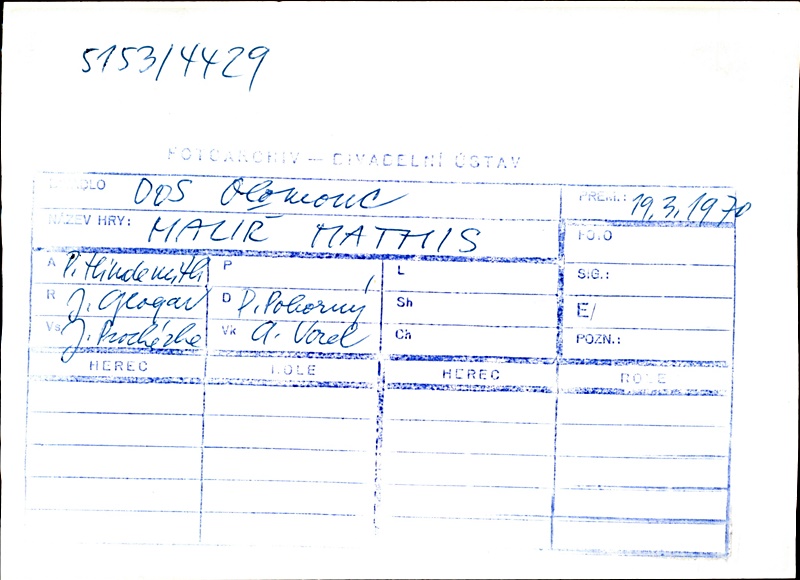 5153/4429
FOTOARCHIV — DIVADELNÍ ÚSTAV
DIVADLO DOS Olomouc PREM.: 19.3.1970
NÁZEV HRY: MALIŘ MATHIS FOTO
A P. Hindemith P L SIG.:
R J. Glogar D P. Pokorný Sh E/
Vs J. Procházka Vk A. Vorel Ch POZN.:
HEREC ROLE HEREC ROLE